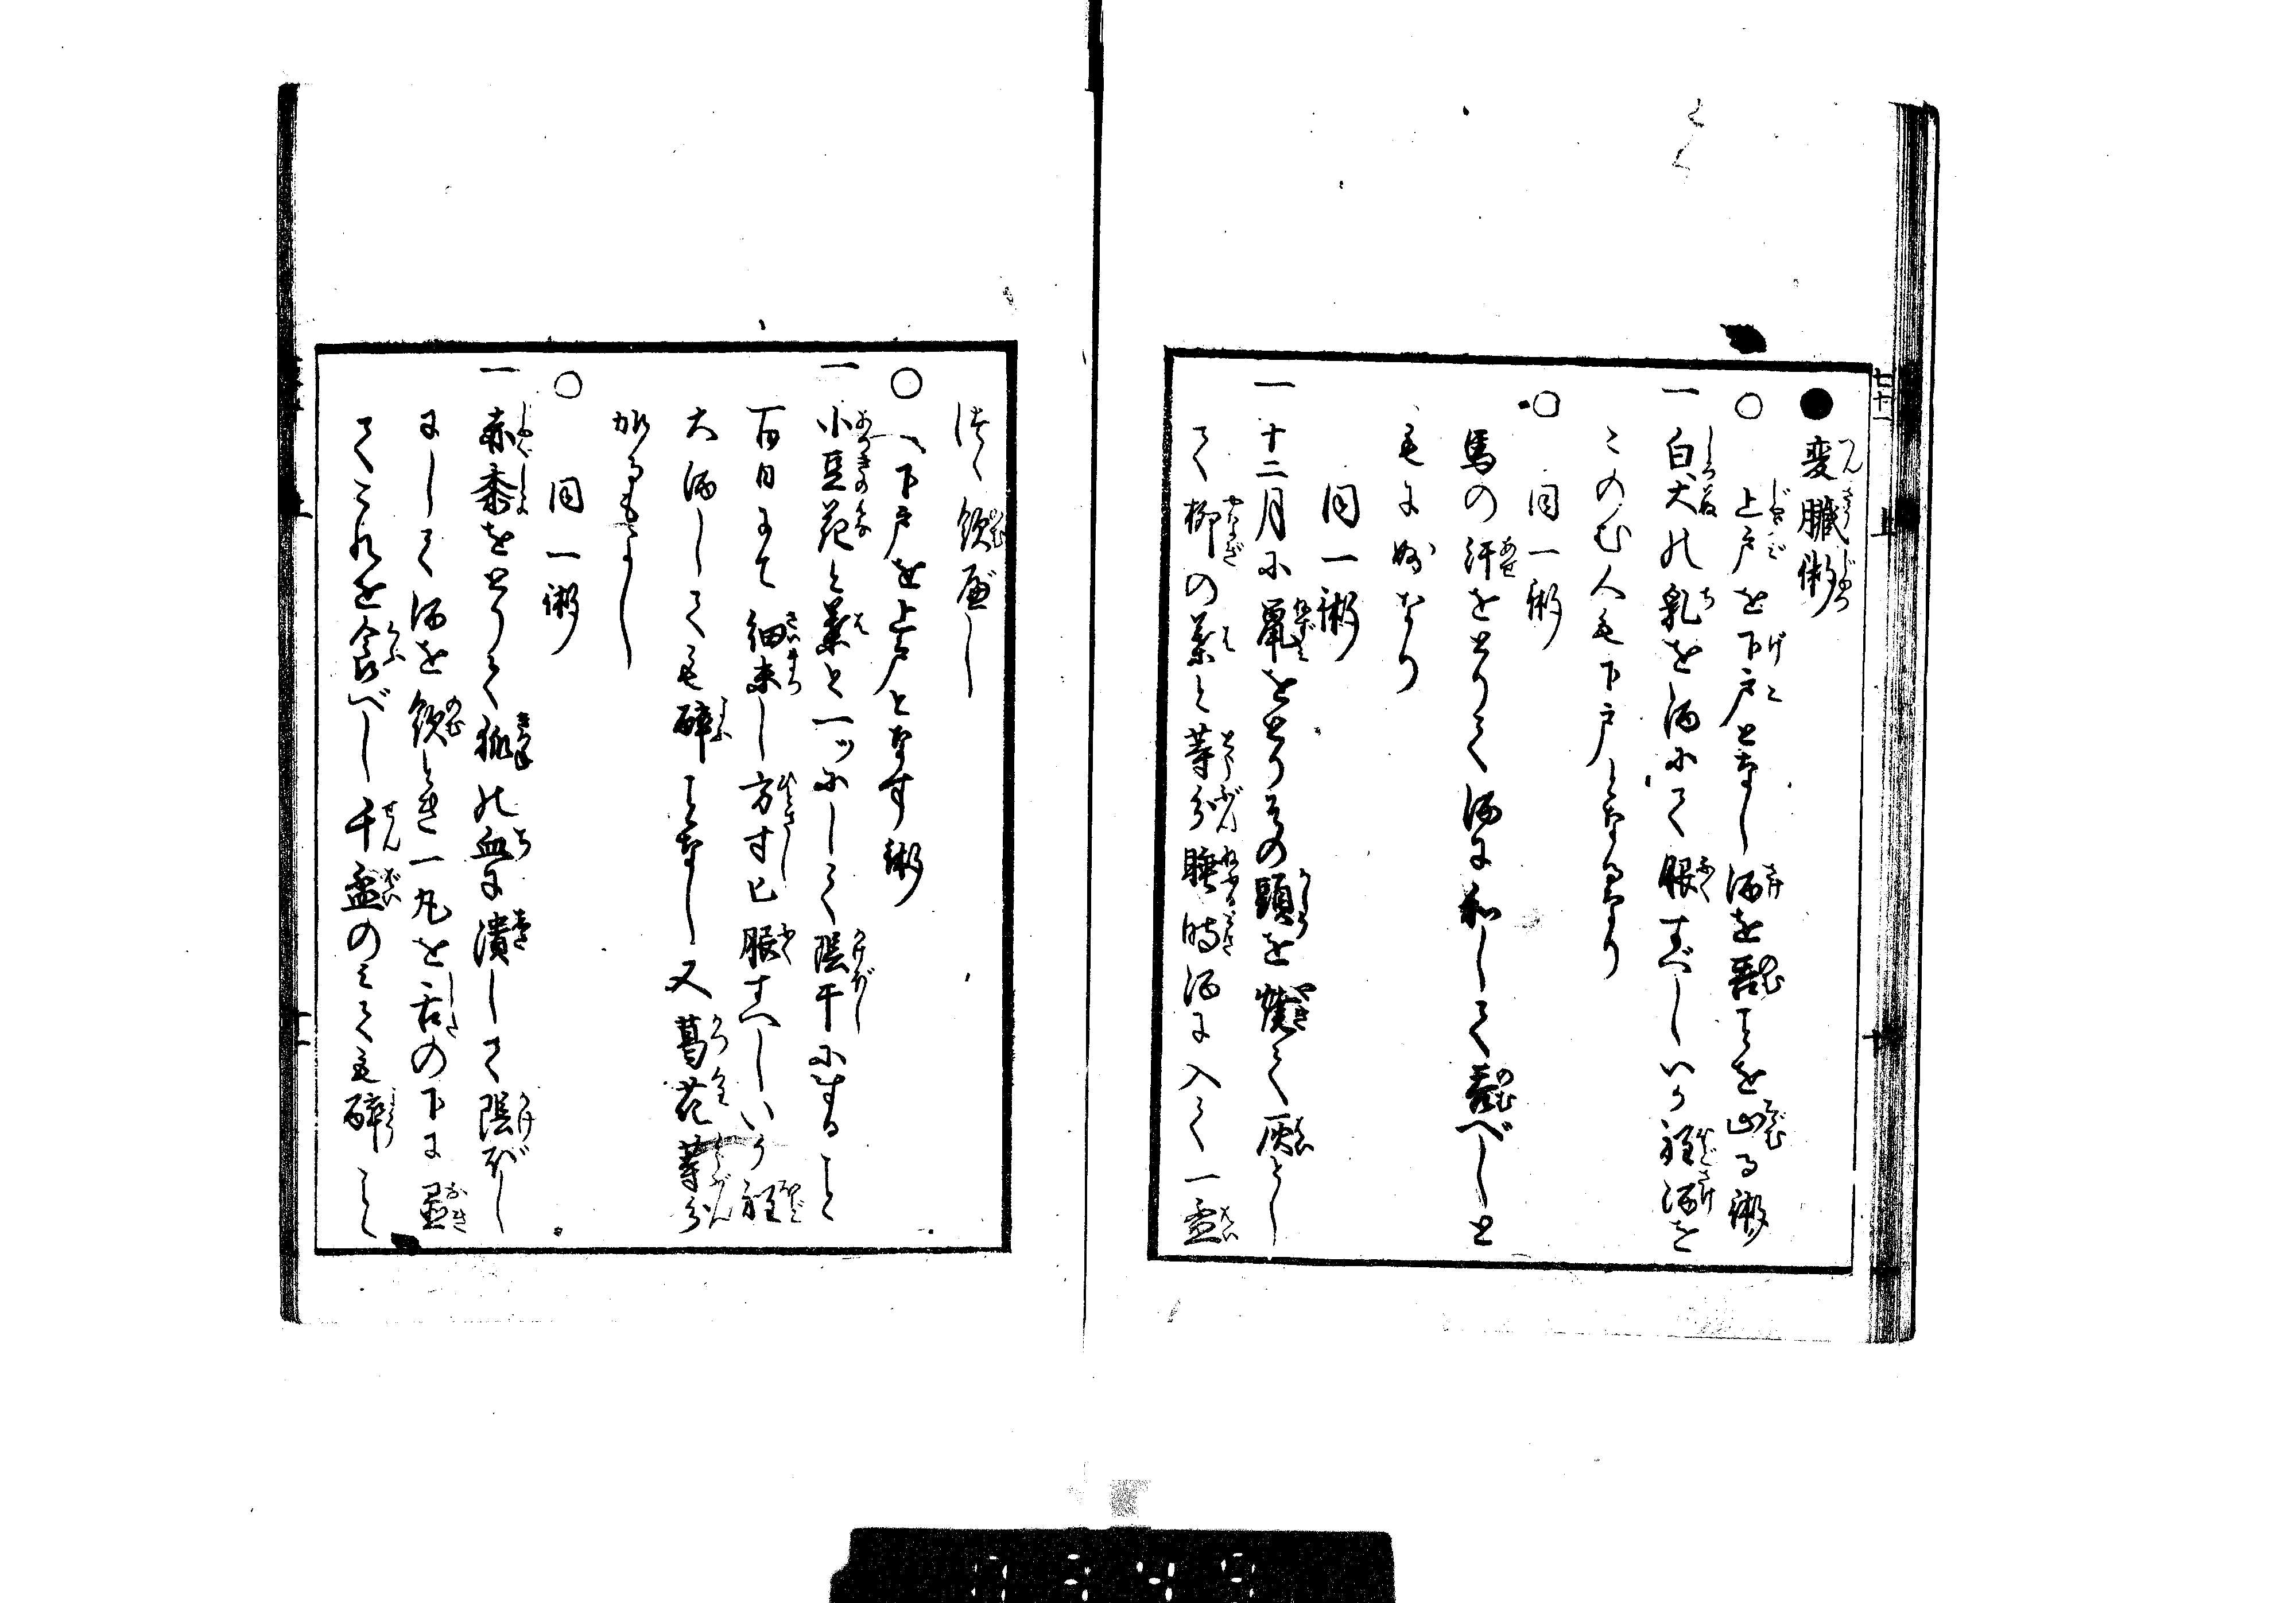 変臓術
上戸を下戸となし酒を呑事を止る術
一 白犬の乳を酒にて服すべしいか程酒を
このむ人も下戸となるなり
同一術
馬の汗をとりて酒に和して呑べしと
も妙なり
同一術
一 十二月に鼠をとりその頭を焼て灰とし
て柳の葉と等分睡時酒に入て一盃
づく飲歴し
下戸を上戸となす術
一 小豆花と葉と一ッにして陰干にする事
百日にて細末し方寸匕服すべしいか程
大酒しても酔事なし又葛花等分
加るもよし
同一術
一 赤黍をとりて狐の血に漬して陰ぼし
にして酒を飲とき一丸を舌の下に置
てこれを含べし千盃のみても酔こと